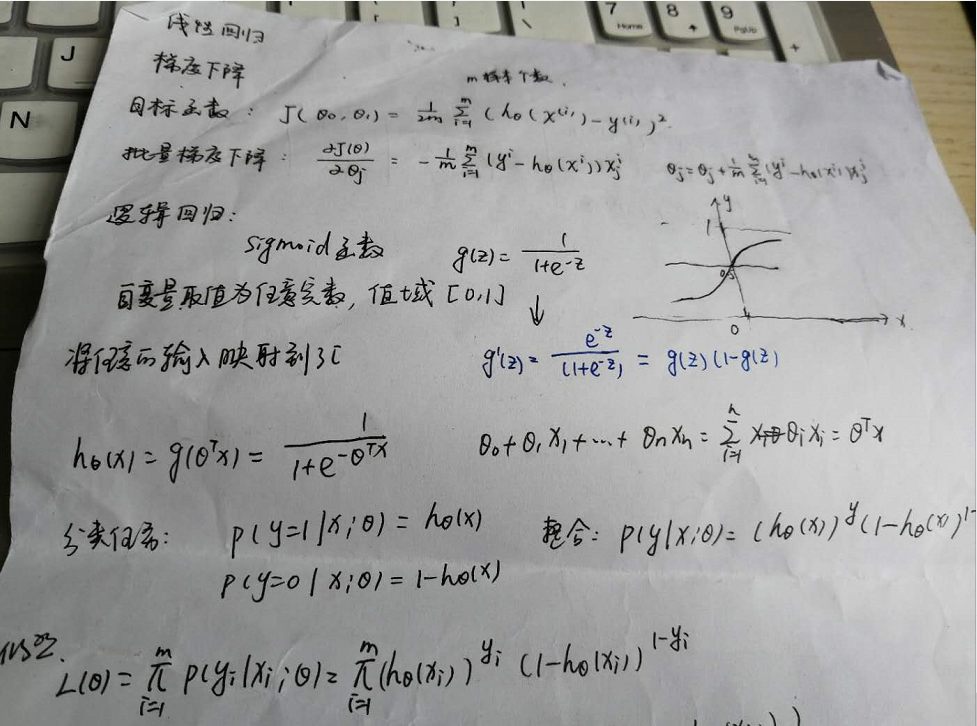 线性回归
梯度下降
m样本个数.
目标函数: J(θ₀, θ₁) = 1/2m Σᵢ₌₁ᵐ (hθ(x⁽ⁱ⁾) - y⁽ⁱ⁾)²
批量梯度下降: ∂J(θ)/∂θⱼ = - 1/m Σᵢ₌₁ᵐ (yⁱ - hθ(xⁱ)) xⱼⁱ    θⱼ = θⱼ + 1/m Σᵢ₌₁ᵐ (yⁱ - hθ(xⁱ)) xⱼⁱ
逻辑回归:
sigmoid函数    g(z) = 1/(1+e^-z)
y
1
0.5
0
x
自变量取值为任意实数, 值域 [0,1]
↓
将任意的输入映射到了[    g'(z) = e^-z/(1+e^-z)₂ = g(z)(1-g(z)
hθ(x) = g(θᵀx) = 1/(1+e^-θᵀx)    θ₀ + θ₁x₁ + … + θₙxₙ = Σᵢ₌₁ⁿ θᵢxᵢ = θᵀx
分类任务: P(y=1|x;θ) = hθ(x)    整合: P(y|x;θ) = (hθ(x))^y (1-hθ(x))^1-
P(y=0|x;θ) = 1-hθ(x)
L(θ) = ∏ᵢ₌₁ᵐ P(yᵢ|xᵢ;θ) = ∏ᵢ₌₁ᵐ (hθ(xᵢ))^yᵢ (1-hθ(xᵢ))^1-yᵢ
N
J
7
Home
8
9
PgUp
+